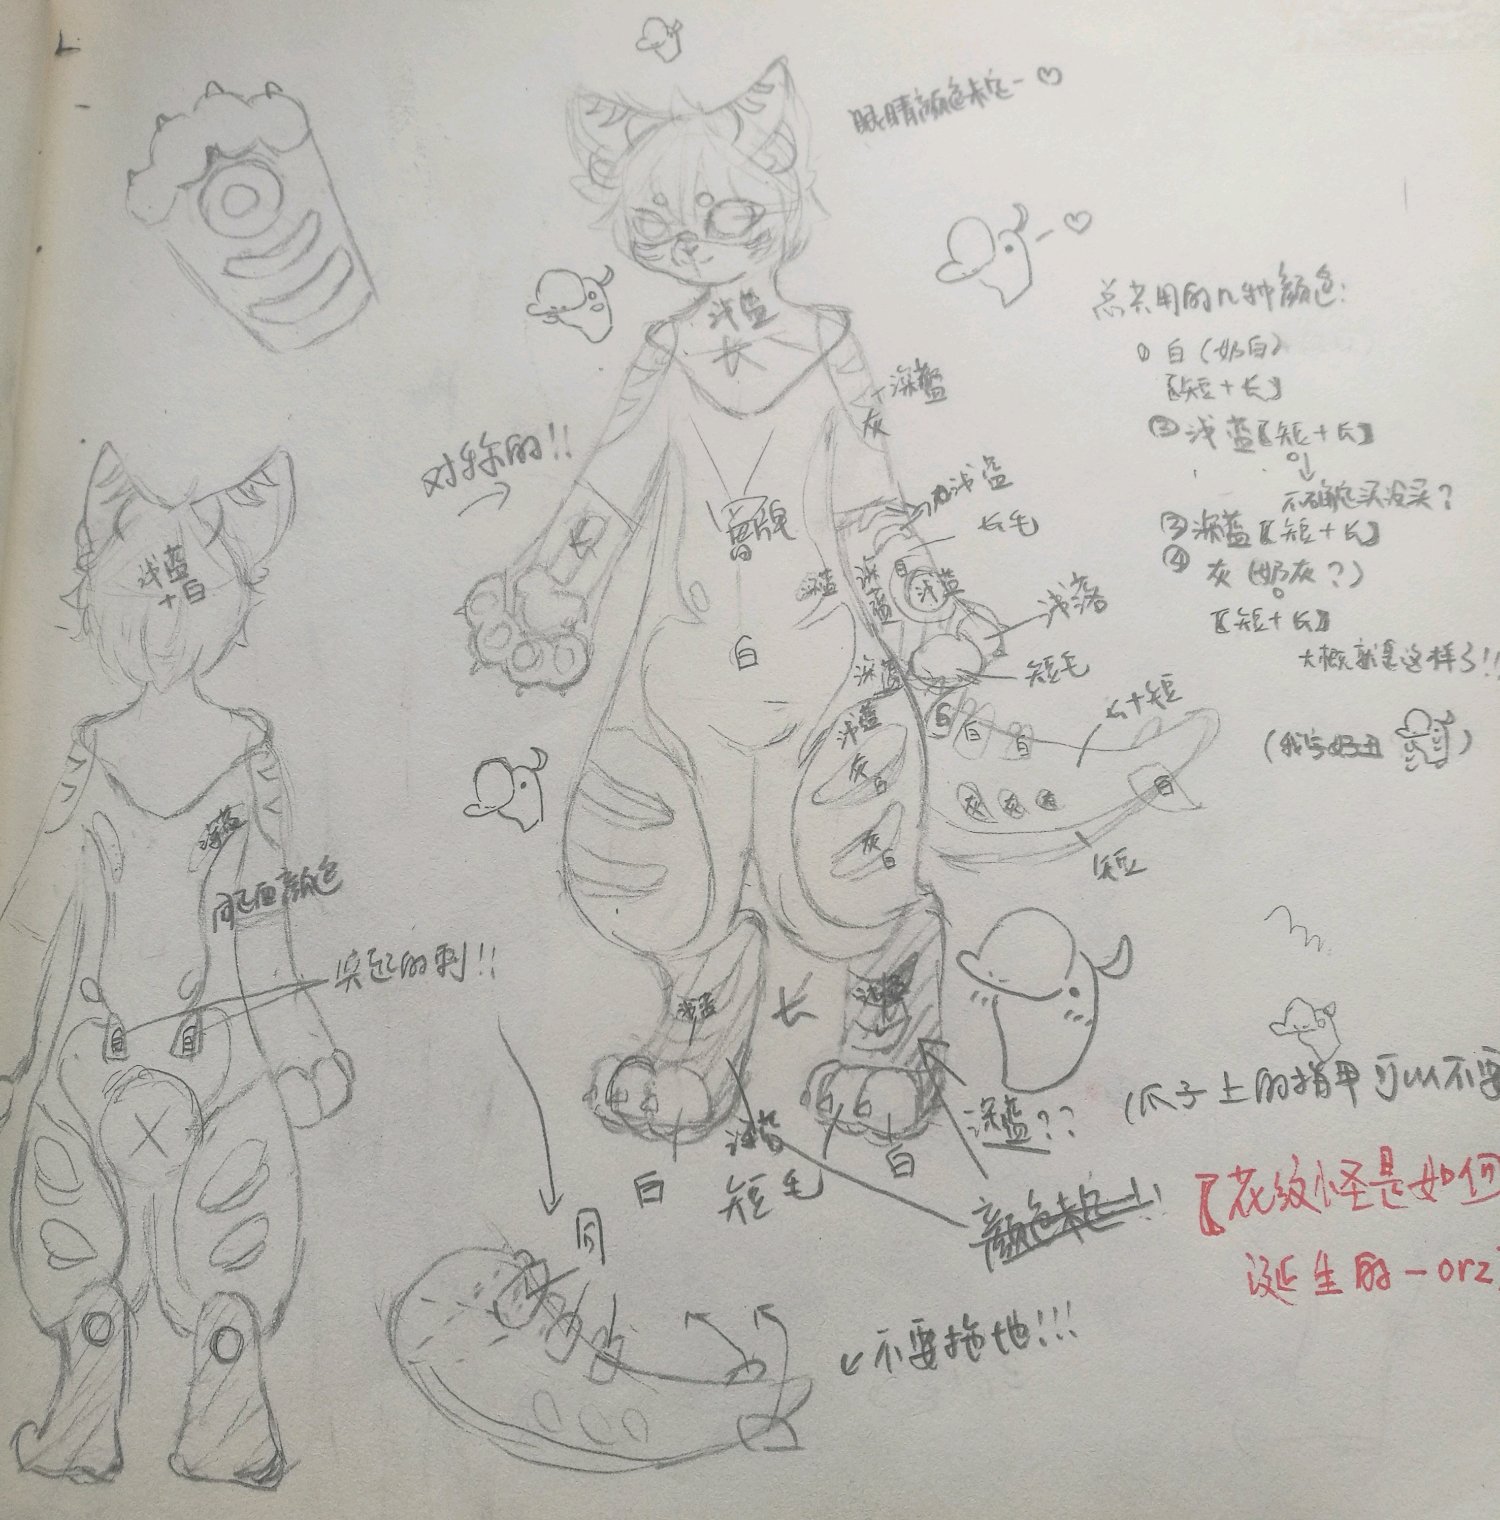 眼睛颜色未定-♡
总共用的几种颜色:
① 白(奶白)
【短+长】
② 浅蓝【短+长】
不确定买没买?
③ 深蓝【短+长】
④ 灰(奶灰?)
【短+长】
大概就是这样了!!
(我写好丑)
浅蓝
长
+深蓝
灰
对称的!!
长
胃牌
浅蓝
长毛
白
浅蓝
深蓝
深蓝
浅蓝
短毛
白
深蓝
浅蓝
灰
白
灰
白
白
白
白
灰
灰
灰
白
长+短
短
浅蓝
+白
深蓝
同正面颜色
突起的刺!!
浅蓝
长
浅蓝
深蓝??
浅蓝
短毛
白
白
颜色未定-!!
(爪子上的指甲可以不要
【花纹怪是如何
诞生的-orz】
同
不要拖地!!!